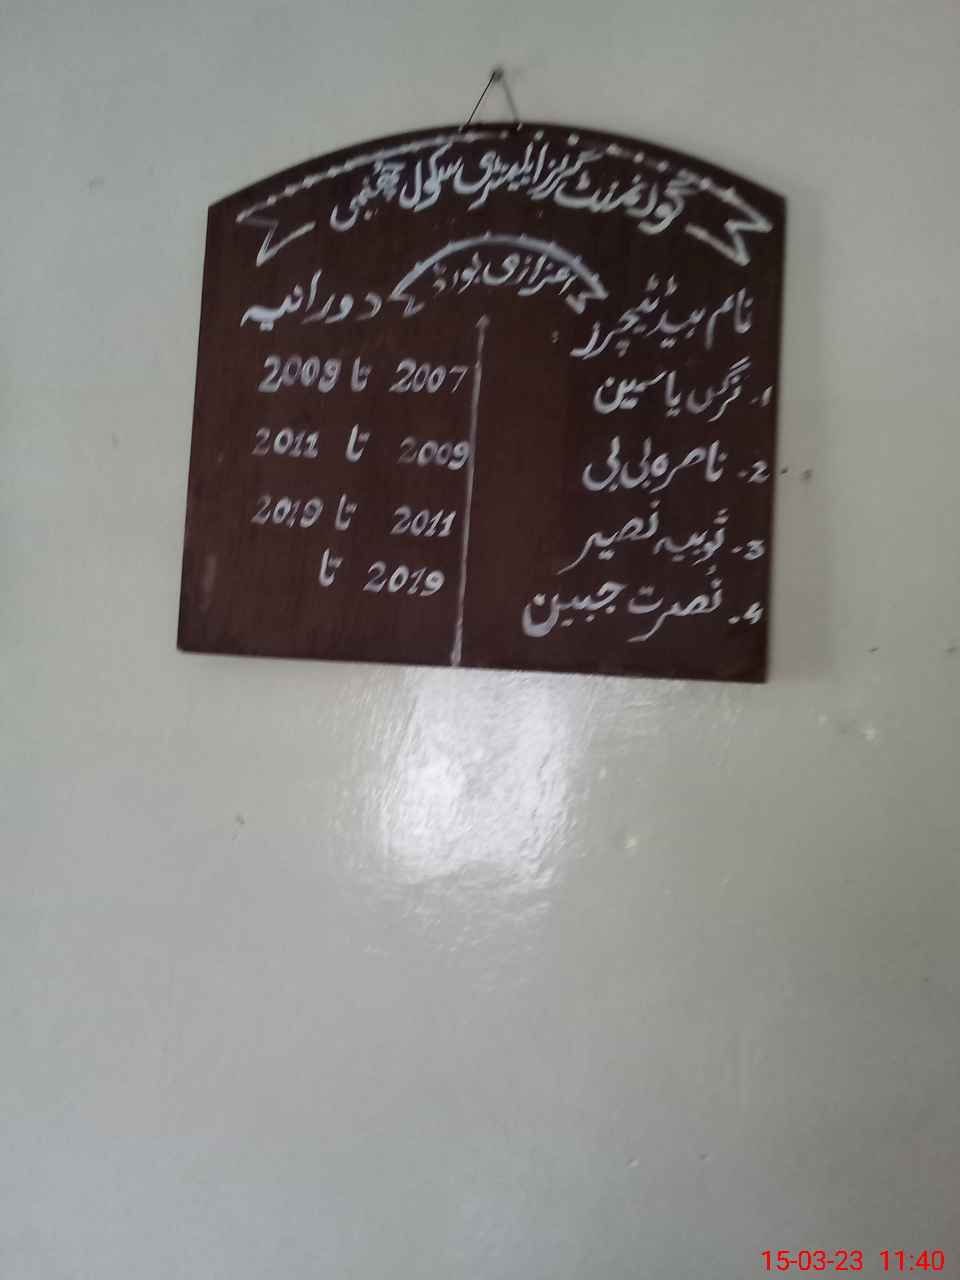 گورنمنٹ گرلز ایلیمنٹری سکول
اعزازی بورڈ
نام ہیڈ ٹیچرز : دورانیہ
1. نرگس یاسمین 2007 تا 2009
2. ناصرہ بی بی 2009 تا 2011
3. ثوبیہ نصیر 2011 تا 2019
4. نصرت جبین 2019 تا
15-03-23 11:40